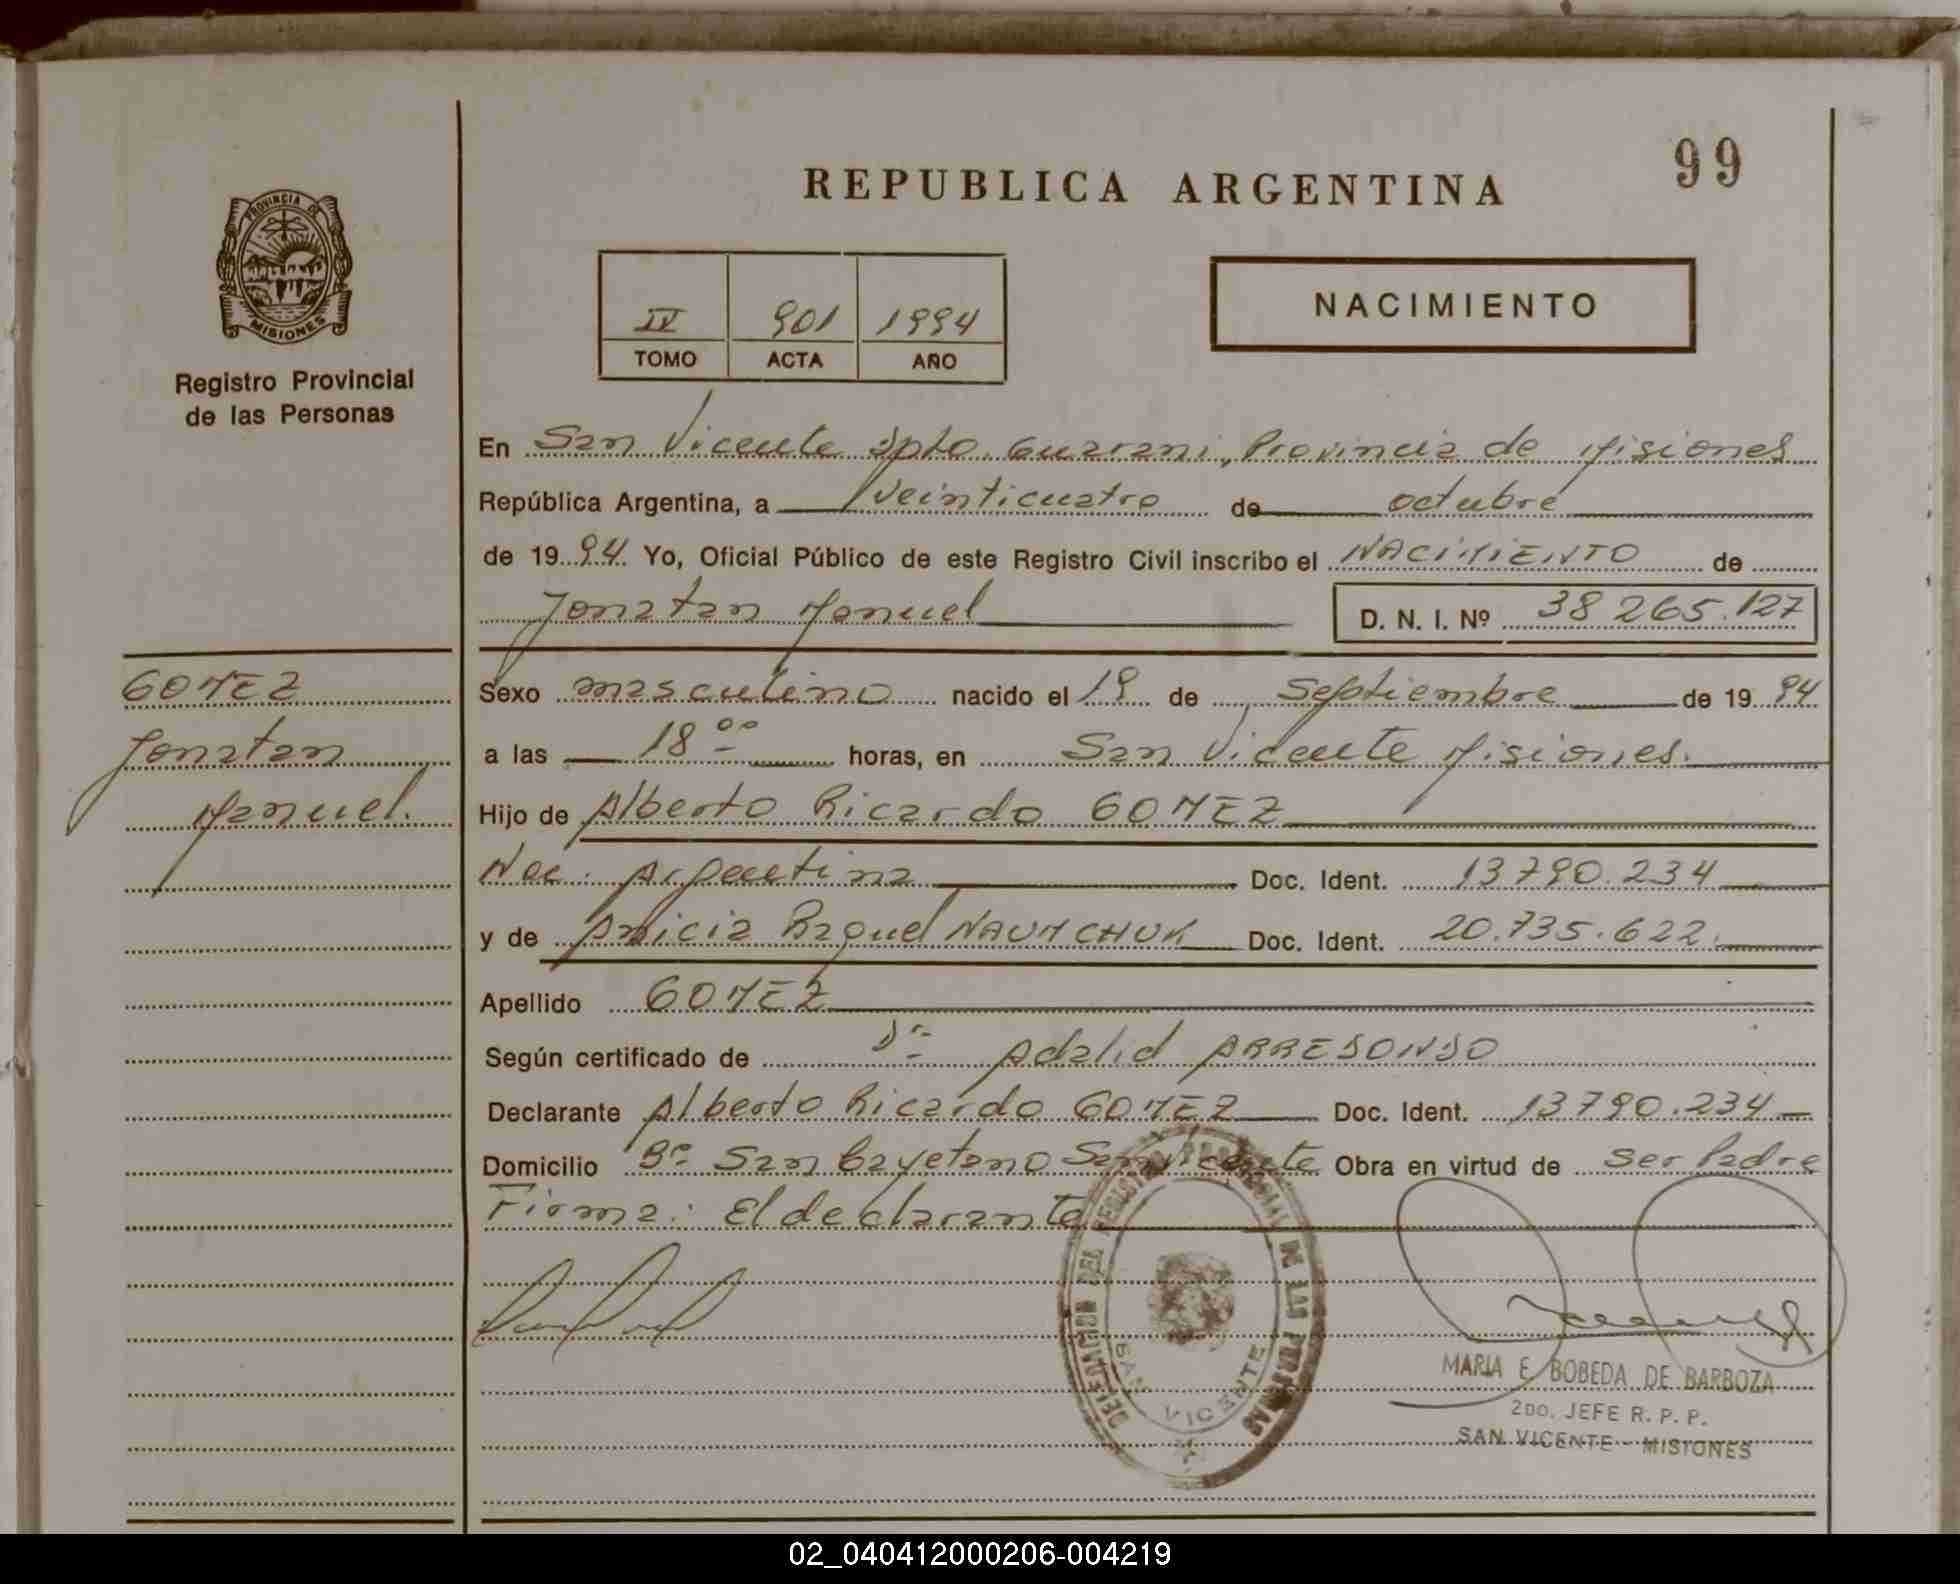 99
REPUBLICA ARGENTINA
PROVINCIA DE
MISIONES
Registro Provincial
de las Personas
IV 901 1994
TOMO ACTA AÑO
NACIMIENTO
En San Vicente Dpto. Guarani, Provincia de Misiones
República Argentina, a veinticuatro de octubre
de 1994. Yo, Oficial Público de este Registro Civil inscribo el NACIMIENTO de
Jonatan Manuel D. N. I. Nº 38 265.127
GOMEZ
Jonatan
Manuel.
Sexo masculino nacido el 19 de Septiembre de 1994
a las 18 00 horas, en San Vicente Misiones.
Hijo de Alberto Ricardo GOMEZ
Nac. Argentina Doc. Ident. 13790.234
y de Raquel NAUMCHUK Doc. Ident. 20.735.622.
Apellido GOMEZ
Según certificado de Dr Adalid ARREDONDO
Declarante Alberto Ricardo GOMEZ Doc. Ident. 13790.234
Domicilio Bº San Cayetano San Vicente Obra en virtud de ser Padre
Firma: El declarante
DELEGACION DEL REGISTRO PROVINCIAL DE LAS PERSONAS
SAN VICENTE
MARIA E. BOBEDA DE BARBOZA
2DO. JEFE R. P. P.
SAN VICENTE - MISIONES
02_040412000206-004219